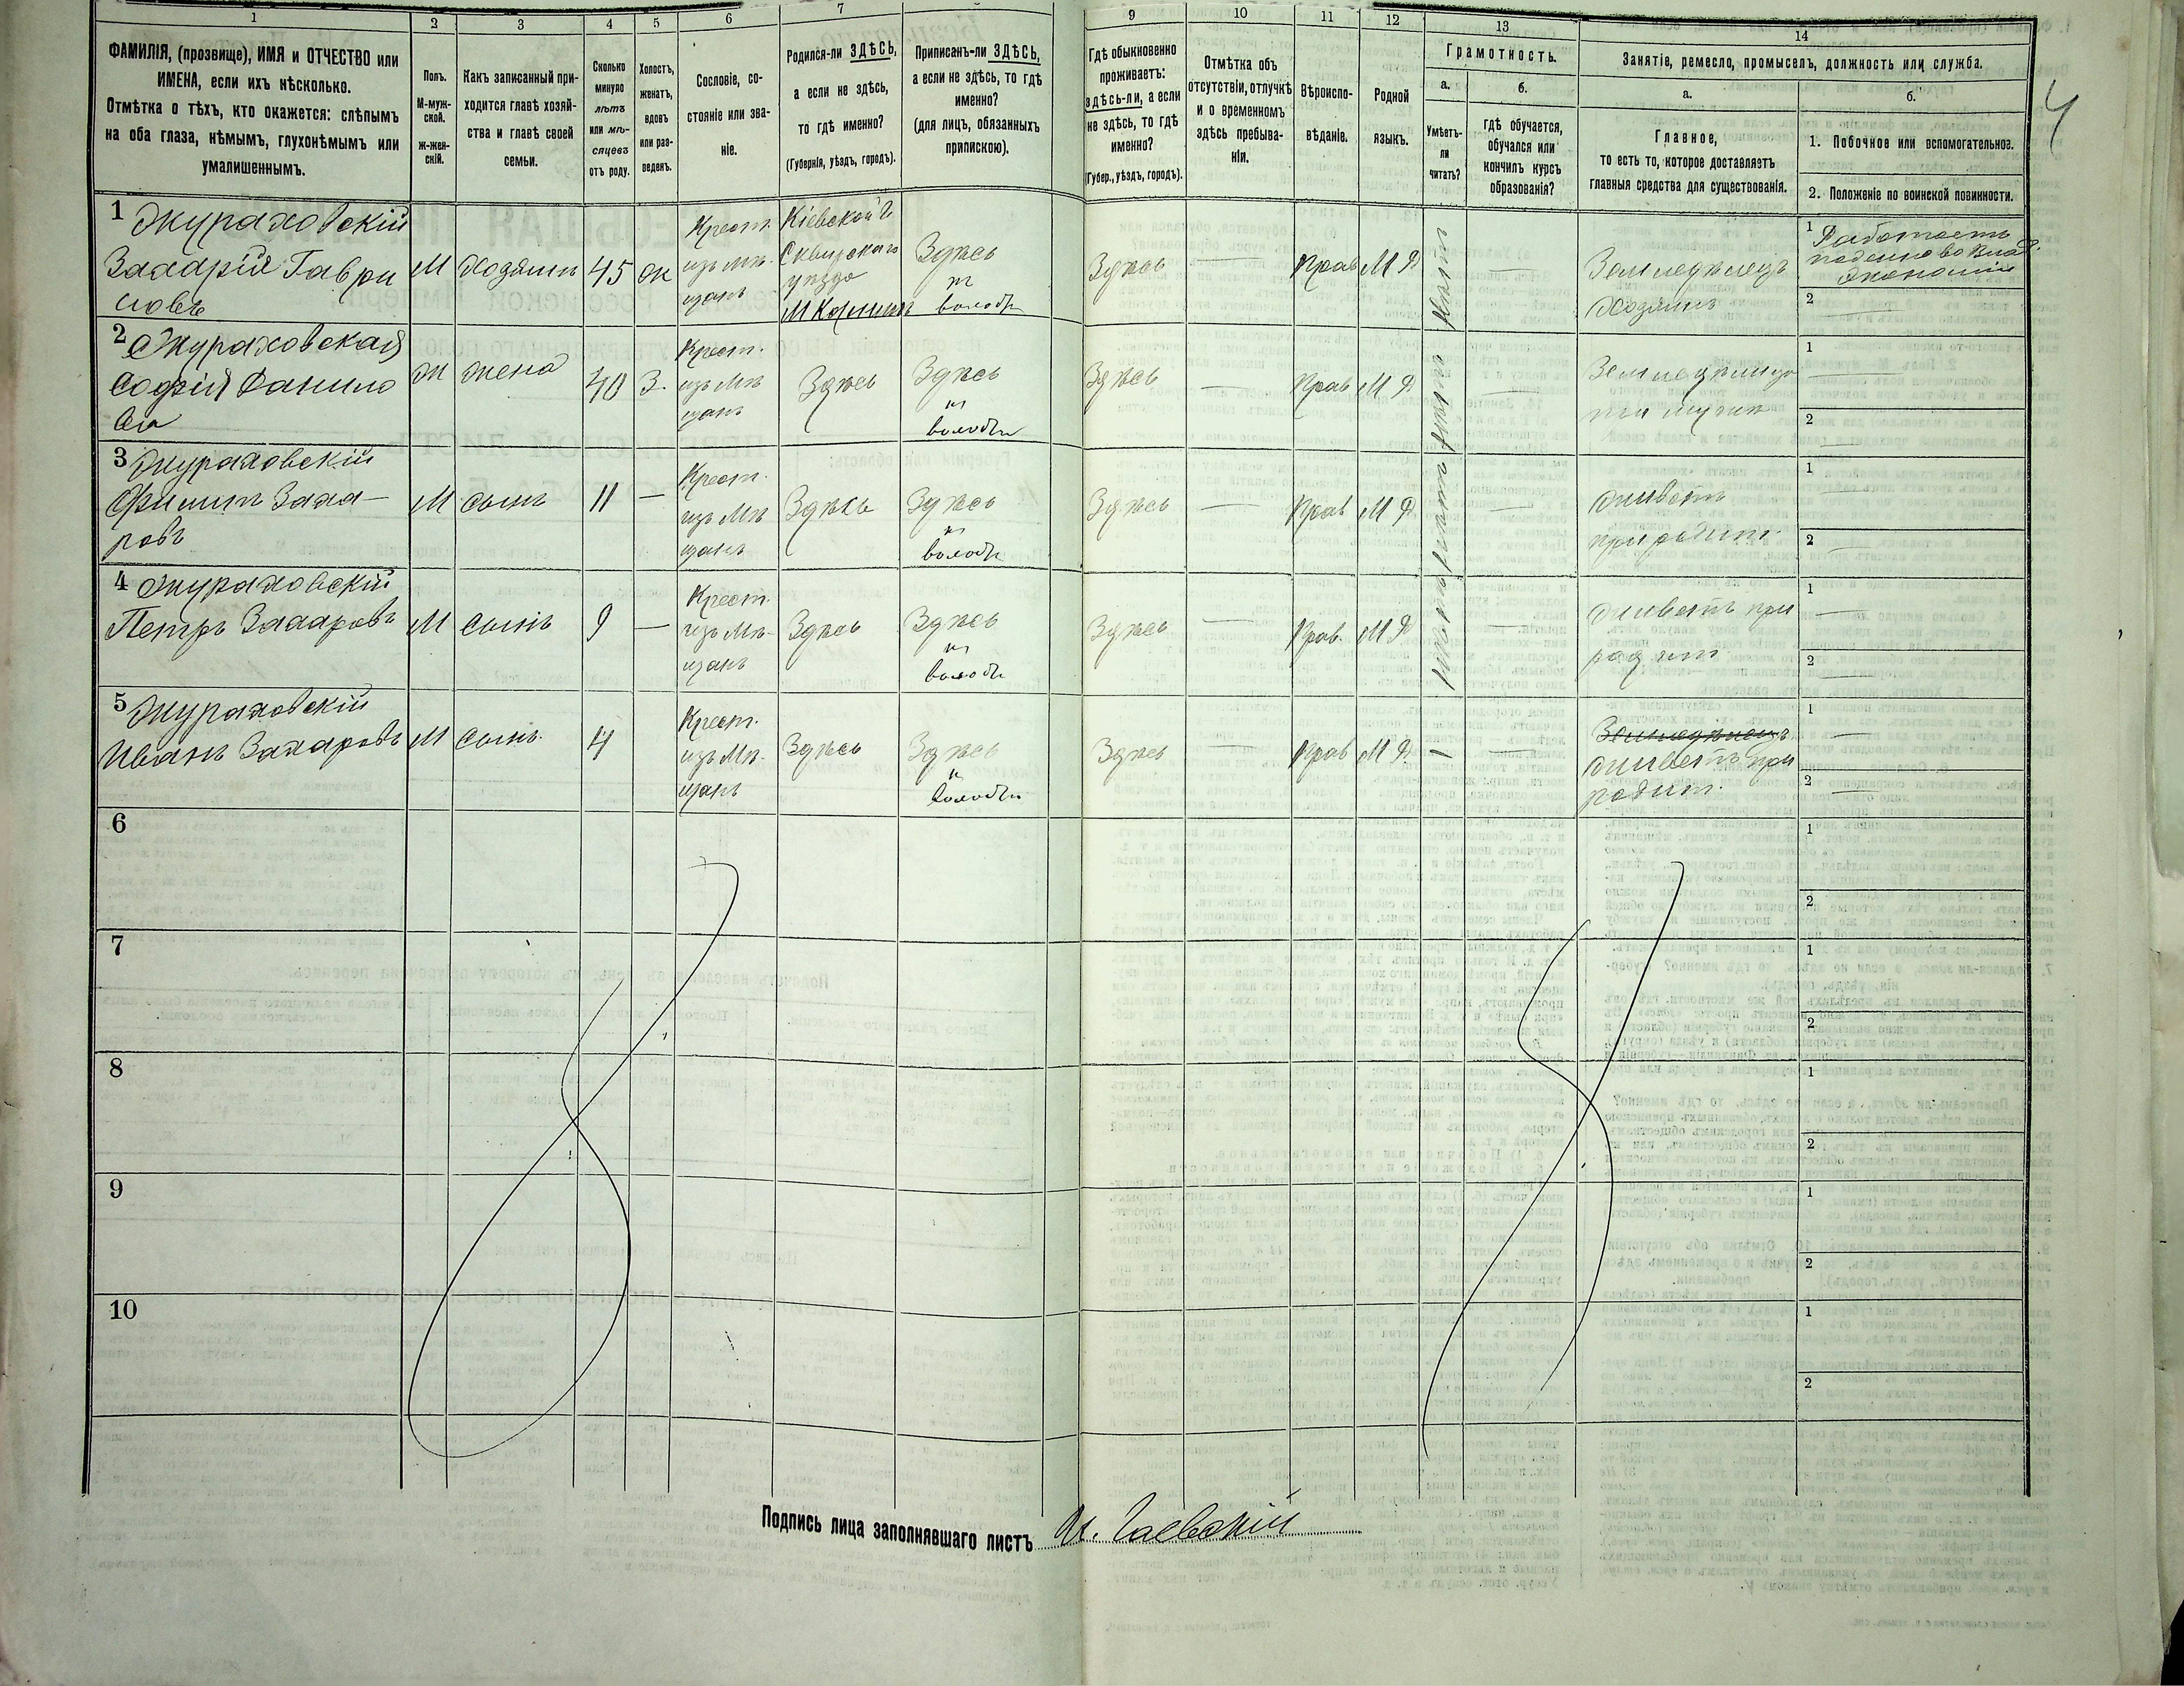 1 2 3 4 5 6 7 9 10 11 12 13 14
ФАМИЛІЯ, (прозвище), ИМЯ и ОТЧЕСТВО или
ИМЕНА, если ихъ нѣсколько.
Отмѣтка о тѣхъ, кто окажется: слѣпымъ
на оба глаза, нѣмымъ, глухонѣмымъ или
умалишеннымъ.
Полъ.
М-муж-
ской.
ж-жен-
скій.
Какъ записанный при-
ходится главѣ хозяй-
ства и главѣ своей
семьи.
Сколько
минуло
лѣтъ
или мѣ-
сяцевъ
отъ роду.
Холостъ,
женатъ,
вдовъ
или раз-
веденъ.
Сословіе, со-
стояніе или зва-
ніе.
Родился-ли ЗДѢСЬ,
а если не здѣсь,
то гдѣ именно?
(Губернія, уѣздъ, городъ).
Приписанъ-ли ЗДѢСЬ,
а если не здѣсь, то гдѣ
именно?
(для лицъ, обязанныхъ
припискою).
Гдѣ обыкновенно
проживаетъ:
здѣсь-ли, а если
не здѣсь, то гдѣ
именно?
(Губер., уѣздъ, городъ).
Отмѣтка объ
отсутствіи, отлучкѣ
и о временномъ
здѣсь пребыва-
ніи.
Вѣроиспо-
вѣданіе.
Родной
языкъ.
Грамотность.
а.
Умѣетъ-
ли
читать?
б.
гдѣ обучается,
обучался или
кончилъ курсъ
образованія?
Занятіе, ремесло, промыселъ, должность или служба.
а.
Главное,
то есть то, которое доставляетъ
главныя средства для существованія.
б.
1. Побочное или вспомогательное.
2. Положеніе по воинской повинности.
4
1 Жураховскій
Захарій Гаври
ловъ
М
Хозяинъ
45
Ж
Крест.
изъ мѣ-
щанъ
Кіевской г
Сквирскаго
уѣзда
Здѣсь
Здѣсь
Прав
М Р
нѣтъ
—
Земледѣлецъ
Хозяинъ
1
2 —
2 Жураховская
Софія Данило
ва
Ж
жена
40
З.
Крест.
изъ мѣ
щанъ
Здѣсь
Здѣсь
Здѣсь
—
Прав
М Р
нѣтъ
—
1 —
2
3 Жураховскій
Филипъ Заха-
ровъ
М
сынъ
11
—
Крест.
изъ мѣ
щанъ
Здѣсь
Здѣсь
Здѣсь
—
Прав
М Р
нѣтъ
—
живетъ
при родит.
1 —
2 —
4 Жураховскій
Петръ Захаровъ
М
сынъ
9
—
Крест.
изъ мѣ-
щанъ
Здѣсь
Здѣсь
Здѣсь
—
Прав.
М Р
нѣтъ
—
живетъ при
родит
1 —
2 —
5 Жураховскій
Иванъ Захаровъ
М
сынъ.
4
Крест.
изъ мѣ-
щанъ
Здѣсь
Здѣсь
Здѣсь
—
Прав
М Р.
—
—
Земледѣлецъ
живетъ при
родит.
1 —
2 —
6
1
2
7
1
2
8
1
2
9
1
2
10
1
2
Подпись лица заполнявшаго листъ